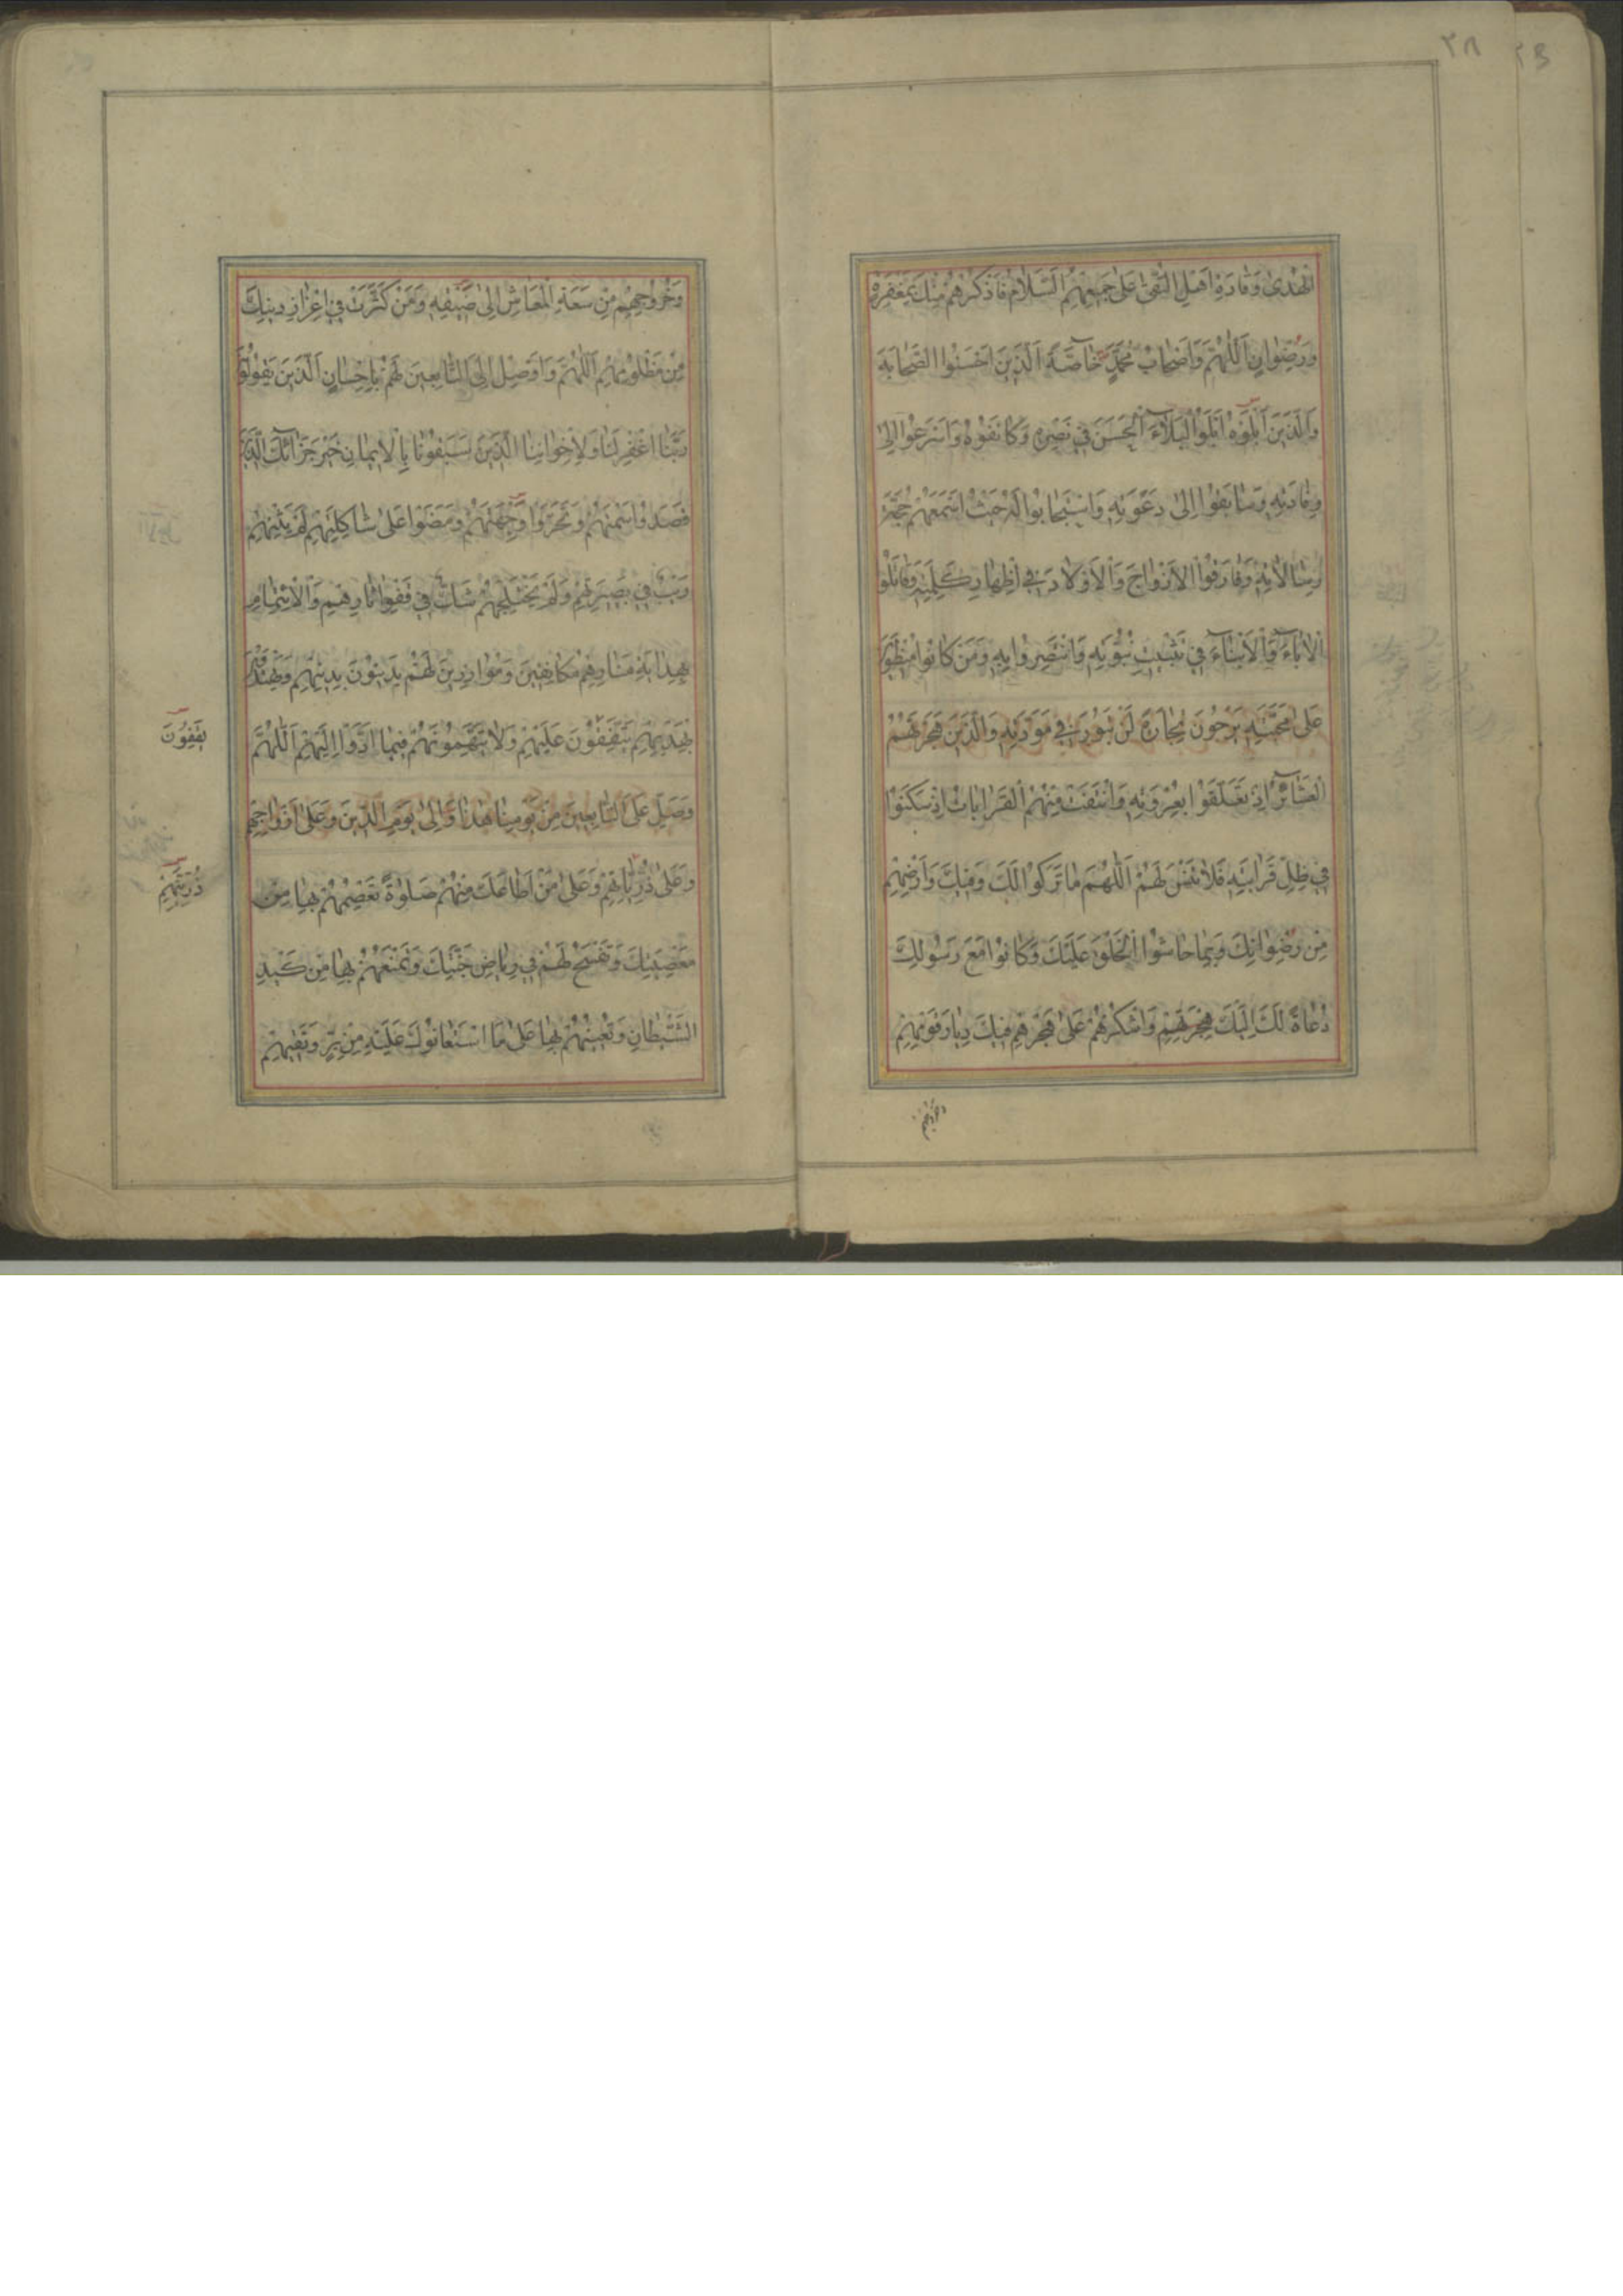 ٢٨
الْهُدىٰ وَقٰادَةِ اَهْلِ التُّقىٰ عَلىٰ جَمِيعِهِمُ السَّلٰامُ فَاذْكُرْهُمْ مِنْكَ بِمَغْفِرَةٍ
وَرِضْوٰانٍ اَللّٰهُمَّ وَاَصْحٰابُ مُحَمَّدٍ خٰاصَّةً اَلَّذِينَ اَحْسَنُوا الصَّحٰابَةَ
وَالَّذِينَ اَبْلَوُا الْبَلٰاءَ الْحَسَنَ فِي نَصْرِهِ وَكٰانَفُوهُ وَاَسْرَعُوا اِلىٰ
وِفٰادَتِهِ وَسٰابَقُوا اِلىٰ دَعْوَتِهِ وَاسْتَجٰابُوا لَهُ حَيْثُ اَسْمَعَهُمْ حُجَّةَ
رِسٰالٰاتِهِ وَفٰارَقُوا الْاَزْوٰاجَ وَالْاَوْلٰادَ فِي اِظْهٰارِ كَلِمَتِهِ وَقٰاتَلُوا
الْاٰبٰاءَ وَالْاَبْنٰاءَ فِي تَثْبِيتِ نُبُوَّتِهِ وَانْتَصَرُوا بِهِ وَمَنْ كٰانُوا مُنْطَوِينَ
عَلىٰ مَحَبَّتِهِ يَرْجُونَ تِجٰارَةً لَنْ تَبُورَ فِي مَوَدَّتِهِ وَالَّذِينَ هَجَرَتْهُمُ
الْعَشٰائِرُ اِذْ تَعَلَّقُوا بِعُرْوَتِهِ وَانْتَفَتْ مِنْهُمُ الْقَرٰابٰاتُ اِذْ سَكَنُوا
فِي ظِلِّ قَرٰابَتِهِ فَلٰا تَنْسَ لَهُمْ اَللّٰهُمَّ مٰا تَرَكُوا لَكَ وَفِيكَ وَاَرْضِهِمْ
مِنْ رِضْوٰانِكَ وَبِمٰا حٰاشُوا الْخَلْقَ عَلَيْكَ وَكٰانُوا مَعَ رَسُولِكَ
دُعٰاةً لَكَ اِلَيْكَ وَاشْكُرْهُمْ عَلىٰ هَجْرِهِمْ فِيكَ دِيٰارَ قَوْمِهِمْ
وَخُرُوجِهِمْ
وَخُرُوجِهِمْ مِنْ سَعَةِ الْمَعٰاشِ اِلىٰ ضِيقِهِ وَمَنْ كَثَّرْتَ فِي اِعْزٰازِ دِينِكَ
مِنْ مَظْلُومِهِمْ اَللّٰهُمَّ وَاَوْصِلْ اِلَى التّٰابِعِينَ لَهُمْ بِاِحْسٰانٍ اَلَّذِينَ يَقُولُونَ
رَبَّنَا اغْفِرْ لَنٰا وَلِاِخْوٰانِنَا الَّذِينَ سَبَقُونٰا بِالْاِيمٰانِ خَيْرَ جَزٰائِكَ الَّذِينَ
قَصَدُوا سَمْتَهُمْ وَتَحَرَّوْا وِجْهَتَهُمْ وَمَضَوْا عَلىٰ شٰاكِلَتِهِمْ لَمْ يَثْنِهِمْ
رَيْبٌ فِي بَصِيرَتِهِمْ وَلَمْ يَخْتَلِجْهُمْ شَكٌّ فِي قَفْوِ اٰثٰارِهِمْ وَالْاِئْتِمٰامِ
بِهِدٰايَةِ مَنٰارِهِمْ مُكٰانِفِينَ وَمُوٰازِرِينَ لَهُمْ يَدِينُونَ بِدِينِهِمْ وَيَهْتَدُونَ
بِهَدْيِهِمْ يَتَّفِقُونَ عَلَيْهِمْ وَلٰا يَتَّهِمُونَهُمْ فِيمٰا اَدَّوْا اِلَيْهِمْ اَللّٰهُمَّ
يَقِفُونَ
وَصَلِّ عَلَى التّٰابِعِينَ مِنْ يَوْمِنٰا هٰذٰا وَاِلىٰ يَوْمِ الدِّينِ وَعَلىٰ اَزْوٰاجِهِمْ
وَعَلىٰ ذُرِّيّٰاتِهِمْ وَعَلىٰ مَنْ اَطٰاعَكَ مِنْهُمْ صَلٰوةً تَعْصِمُهُمْ بِهٰا مِنْ
ذُرِّيَّتِهِمْ
مَعْصِيَتِكَ وَتَفْسَحُ لَهُمْ فِي رِيٰاضِ جَنَّتِكَ وَتَمْنَعُهُمْ بِهٰا مِنْ كَيْدِ
الشَّيْطٰانِ وَتُعِينُهُمْ بِهٰا عَلىٰ مَا اسْتَعٰانُوكَ عَلَيْهِ مِنْ بِرٍّ وَتَقِيهِمْ